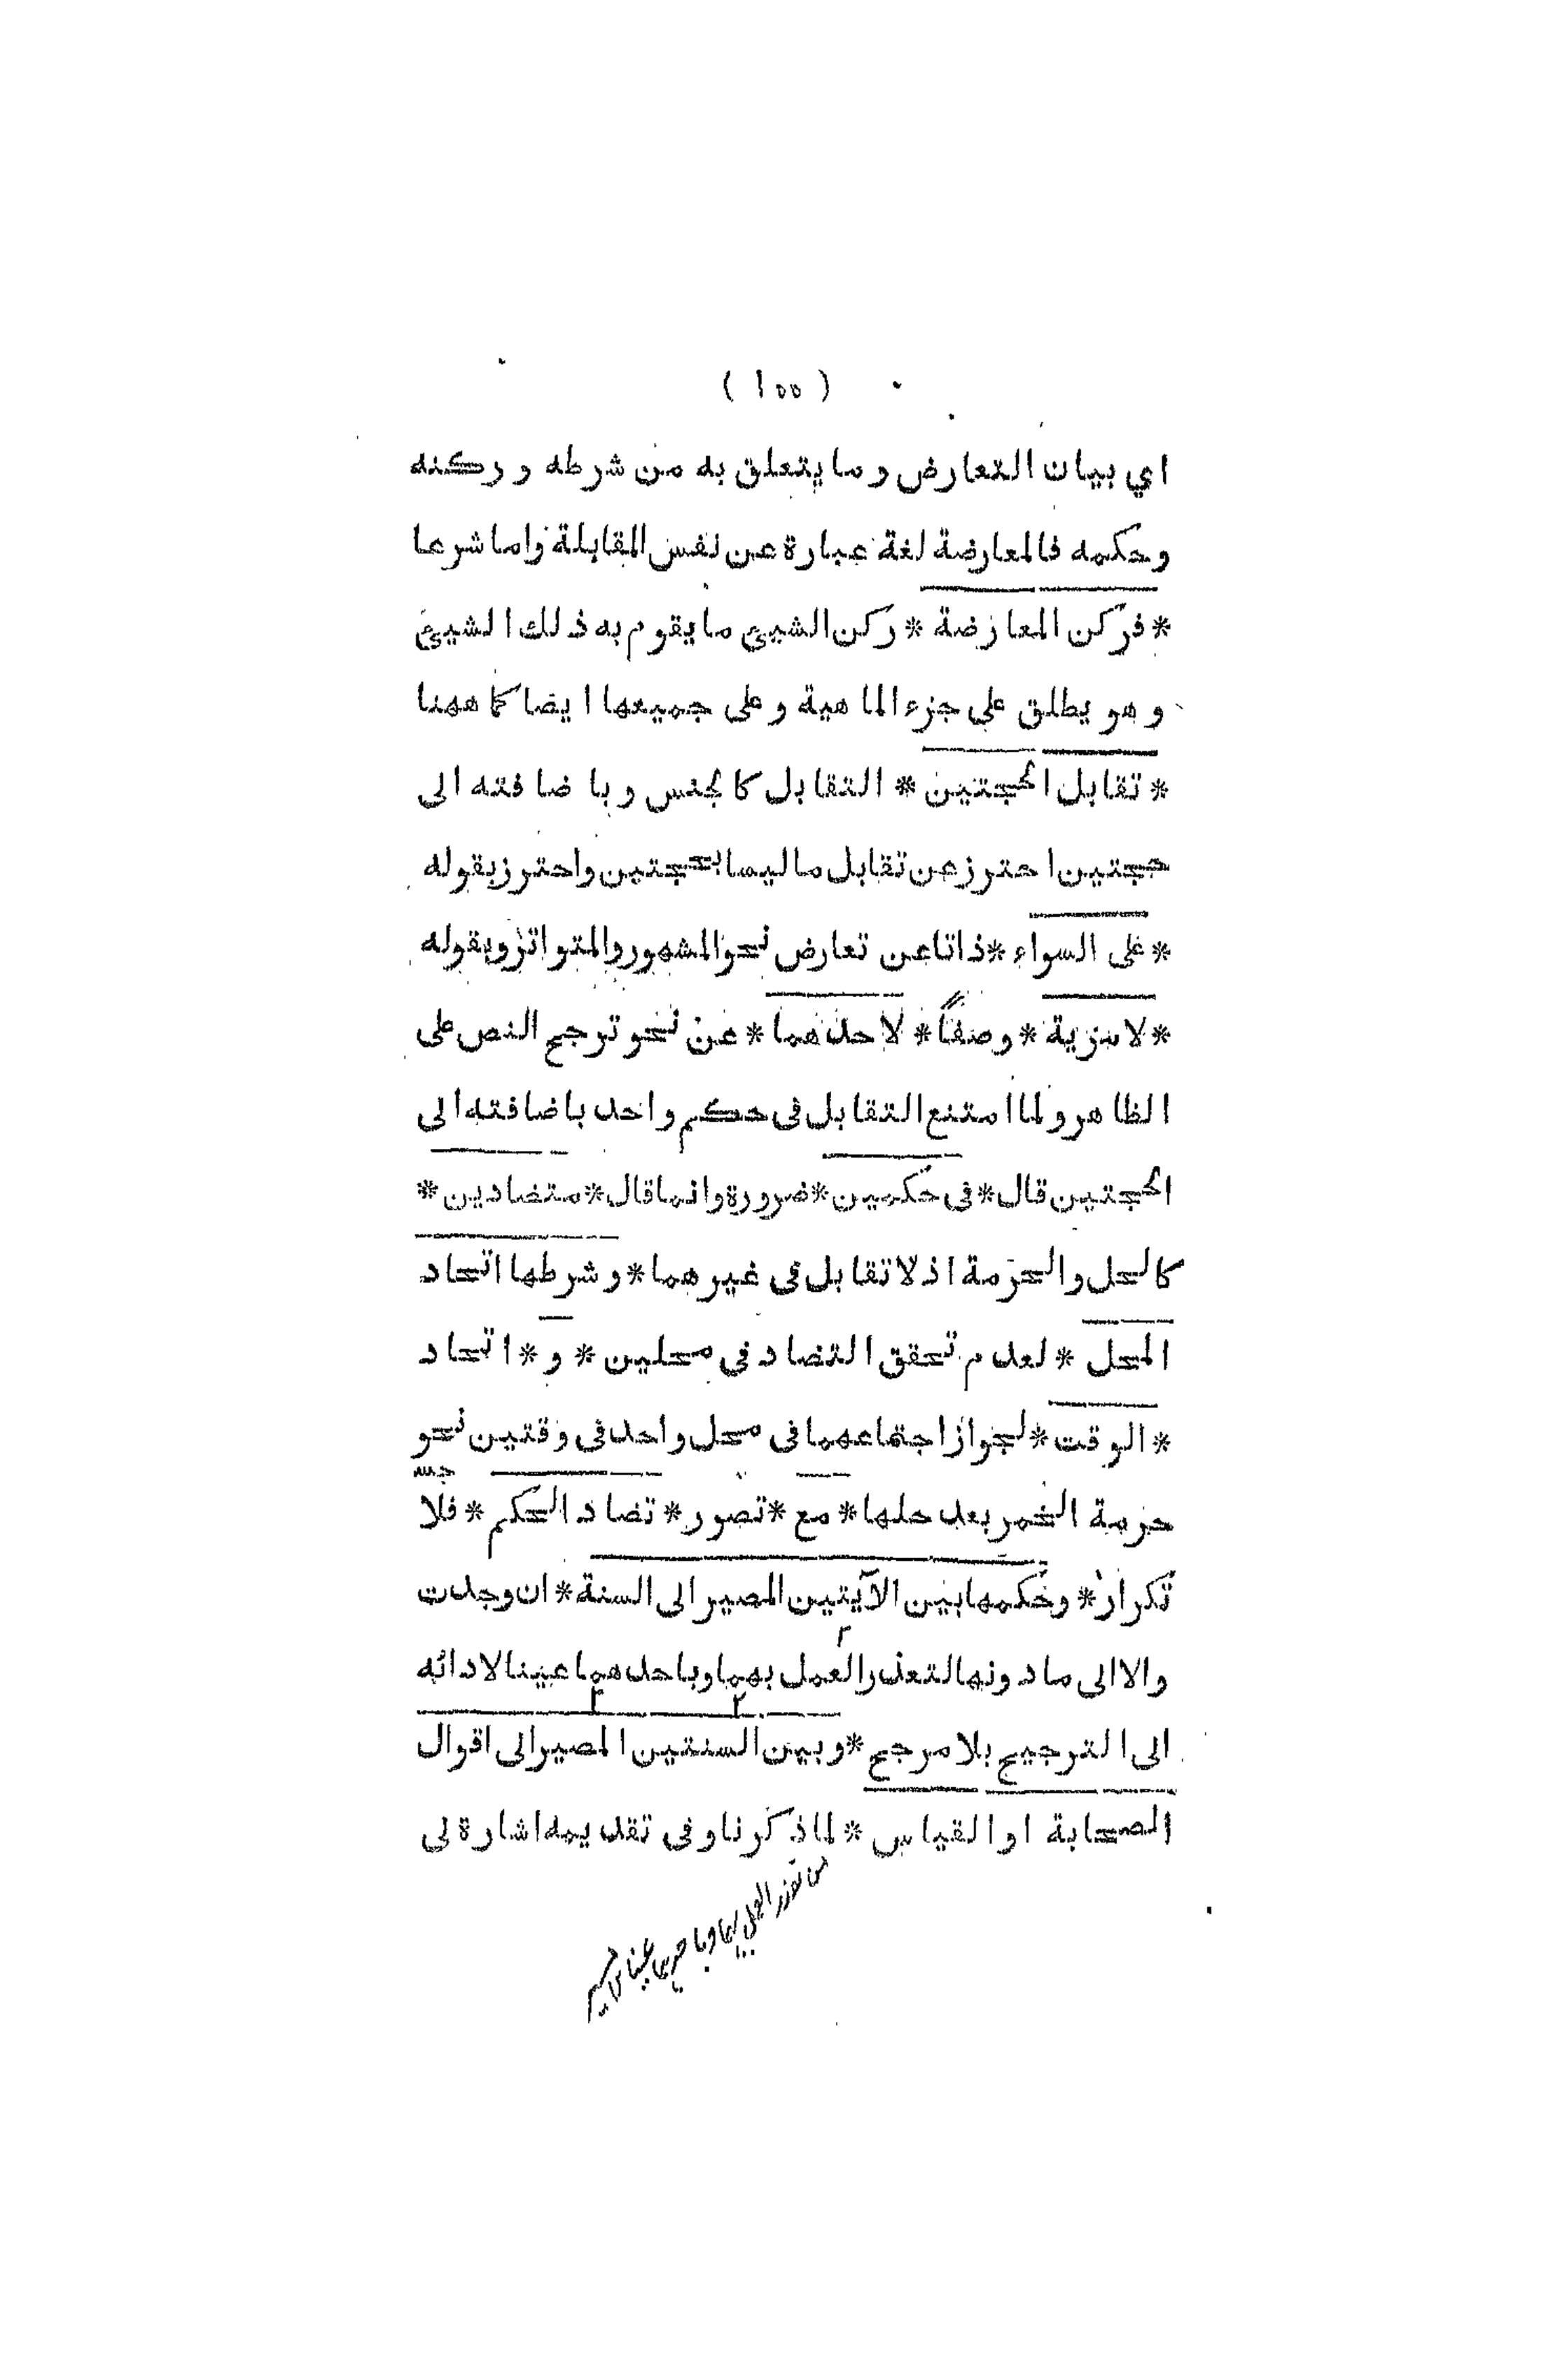 ( ١٥٥ )
اي بيان التعارض وما يتعلق به من شرطه وركنه
وحكمه فالمعارضة لغة عبارة عن نفس المقابلة واما شرعا
* فركن المعارضة * ركن الشيئ ما يقوم به ذلك الشيئ
وهو يطلق على جزء الماهية وعلى جميعها ايضا كما ههنا
* تقابل الحجتين * التقابل كالجنس وباضافته الى
حجتين احترز عن تقابل ما ليسا بحجتين واحترز بقوله
* على السواء * ذاتا عن تعارض نحو المشهور والمتواتر وبقوله
* لا مزية * وصفاً * لاحدهما * عن نحو ترجح النص على
الظاهر ولما امتنع التقابل فى حكم واحد باضافته الى
الحجتين قال * فى حكمين * ضرورة وانما قال * متضادين *
كالحل والحرمة اذ لا تقابل فى غيرهما * وشرطها اتحاد
المحل * لعدم تحقق التضاد فى محلين * و * اتحاد
* الوقت * لجواز اجتماعهما فى محل واحد فى وقتين نحو
حرمة الخمر بعد حلها * مع * تصور * تضاد الحكم * فلا
تكرار * وحكمها بين الآيتين المصير الى السنة * ان وجدت
والا الى ما دونها لتعذر العمل بهما وباحدهما عينا لادائه
الى الترجيح بلا مرجح * وبين السنتين المصير الى اقوال
الصحابة او القياس * لما ذكرنا وفى تقديمه اشارة لى
من تعذر العمل بهما وباحدهما عينا